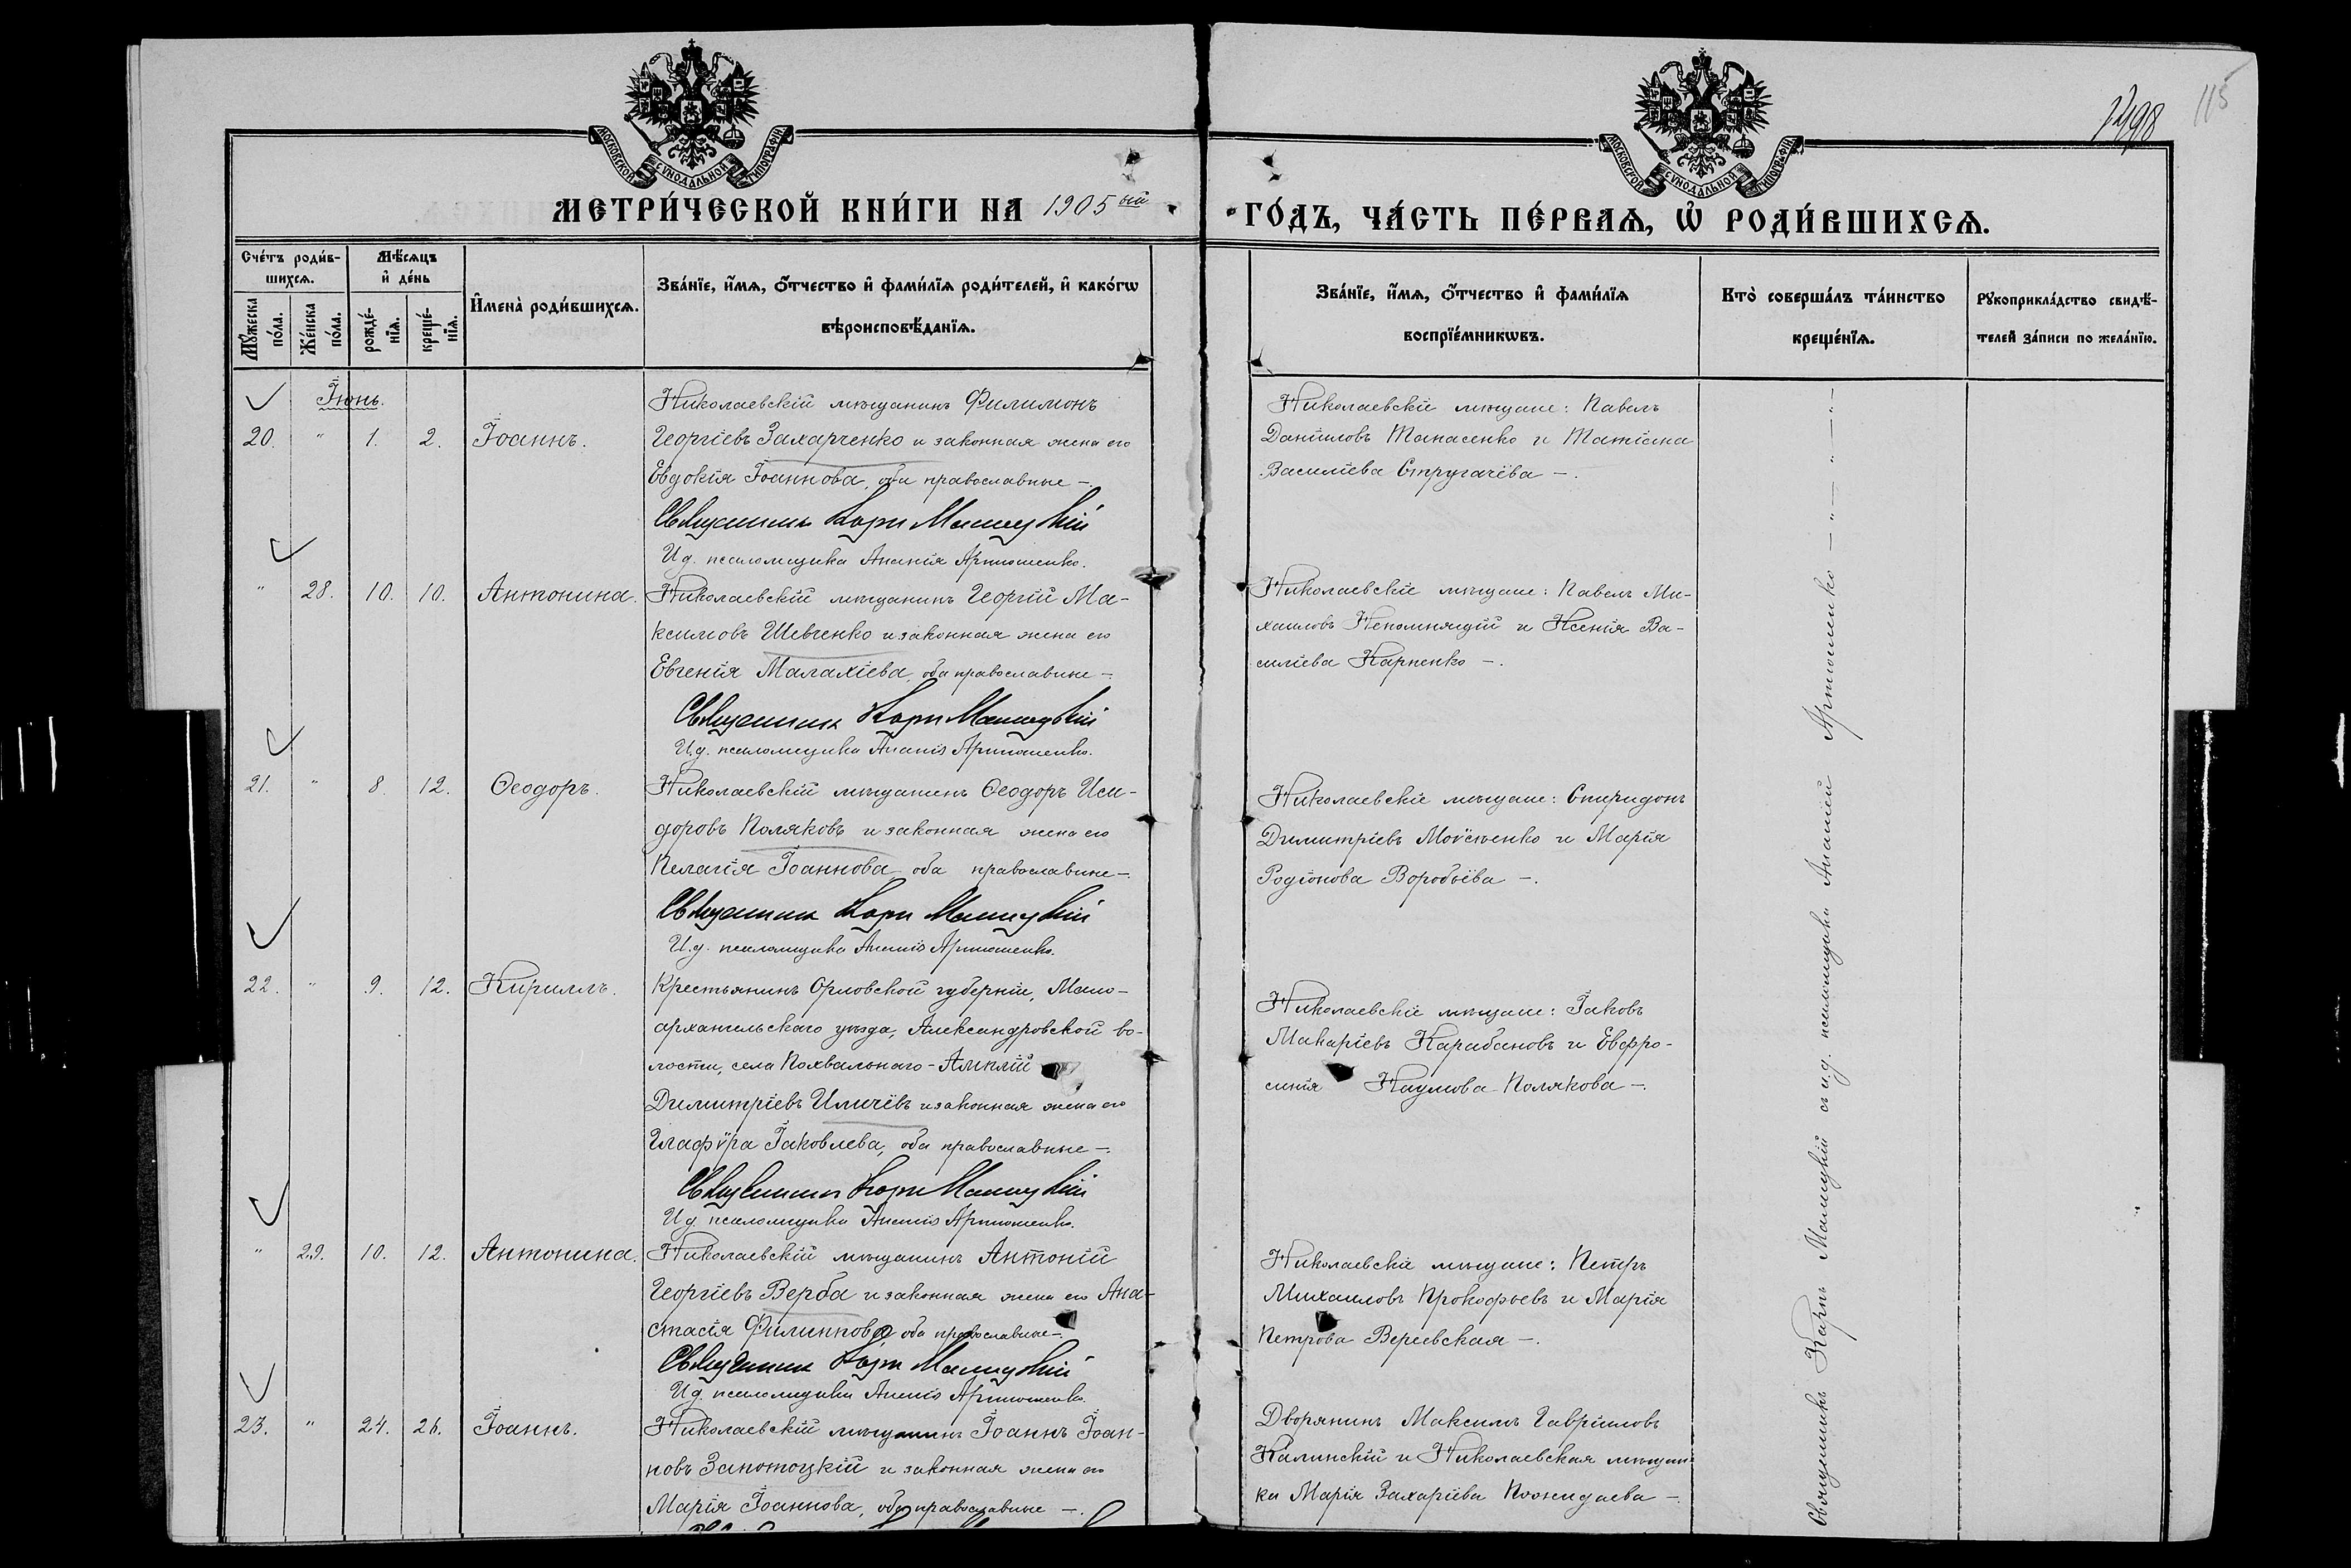 1498
115
МОСКОВСКОЙ СѴНОДАЛЬНОЙ ТИПОГРАФІИ
МОСКОВСКОЙ СѴНОДАЛЬНОЙ ТИПОГРАФІИ
МЕТРИ́ЧЕСКОЙ КНИ́ГИ НА 1905ый
ГО́ДЪ, ЧА́СТЬ ПЕ́РВАѦ, Ѡ҆ РОДИ́ВШИХСѦ.
Сче́тъ роди́в-
шихсѧ.
Мꙋ́жеска
по́ла.
Же́нска
по́ла.
Мѣ́сѧцъ
и҆ де́нь
рожде́-
нїѧ.
креще́-
нїѧ.
И҆мена̀ роди́вшихсѧ.
Зва́нїе, и҆́мѧ, ѻ҆́тчество и҆ фами́лїѧ роди́телей, и҆ како́гѡ
вѣроисповѣ́данїѧ.
Зва́нїе, и҆́мѧ, ѻ҆́тчество и҆ фами́лїѧ
воспрїе́мникѡвъ.
Кто̀ соверша́лъ та́инство
креще́нїѧ.
Рꙋкоприкла́дство свидѣ́-
телей за́писи по жела́нїю.
Іюнь.
20. " 1. 2. Іоаннъ.
Николаевскій мѣщанинъ Филимонъ
Георгіевъ Захарченко и законная жена его
Евдокія Іоаннова, оба православные –.
Священникъ Карпъ Малицкій
И.д. псаломщика Ананія Артюшенко.
Николаевскіе мѣщане: Павелъ
Даніиловъ Танасенко и Татіана
Василіева Стругачёва –.
" 28. 10. 10. Антонина.
Николаевскій мѣщанинъ Георгій Ма-
ксимовъ Шевченко и законная жена его
Евгенія Малахіева, оба православные –.
Священникъ Карпъ Малицкій
И.д. псаломщика Ананія Артюшенко.
Николаевскіе мѣщане: Павелъ Ми-
хаиловъ Непомнящій и Ксенія Ва-
силіева Карпенко –.
21. " 8. 12. Ѳеодоръ.
Николаевскій мѣщанинъ Ѳеодоръ Иси-
доровъ Поляковъ и законная жена его
Пелагія Іоаннова, оба православные –.
Священникъ Карпъ Малицкій
И.д. псаломщика Ананія Артюшенко.
Николаевскіе мѣщане: Спиридонъ
Димитріевъ Моѵсѣенко и Марія
Родіонова Воробьёва –.
22. " 9. 12. Кириллъ.
Крестьянинъ Орловской губерніи, Мало-
архангельскаго уѣзда, Александровской во-
лости, села Похвальнаго -
Димитріевъ Иличёвъ и законная жена его
Глафѵра Іаковлева, оба православные –.
Священникъ Карпъ Малицкій
И.д. псаломщика Ананія Артюшенко.
Николаевскіе мѣщане: Іаковъ
Макаріевъ Карабановъ и Евфро-
синія Наумова Полякова –.
" 29. 10. 12. Антонина.
Николаевскій мѣщанинъ Антоній
Георгіевъ Верба и законная жена его Ана-
стасія Филиппова, оба православные –.
Священникъ Карпъ Малицкій
И.д. псаломщика Ананія Артюшенко.
Николаевскіе мѣщане: Петръ
Михаиловъ Прокофьевъ и Марія
Петрова Вереевская –.
23. " 24. 26. Іоаннъ.
Николаевскій мѣщанинъ Іоаннъ Іоан-
новъ Запотоцкій и законная жена его
Марія Іоаннова, оба православные –.
Дворянинъ Максимъ Гавріиловъ
Калинскій и Николаевская мѣщан-
ка Марія Захаріева Поожидаева –.
Священникъ Карпъ Малицкій съ и.д. псаломщика Ананіей Артюшенко – " – " – " –